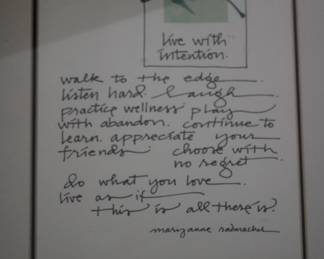 live with
intention.
walk to the edge.
listen hard. laugh.
practice wellness play
with abandon. continue to
learn. appreciate your
friends choose with
no regret.
do what you love.
live as if
this is all there is.
maryanne radmacher